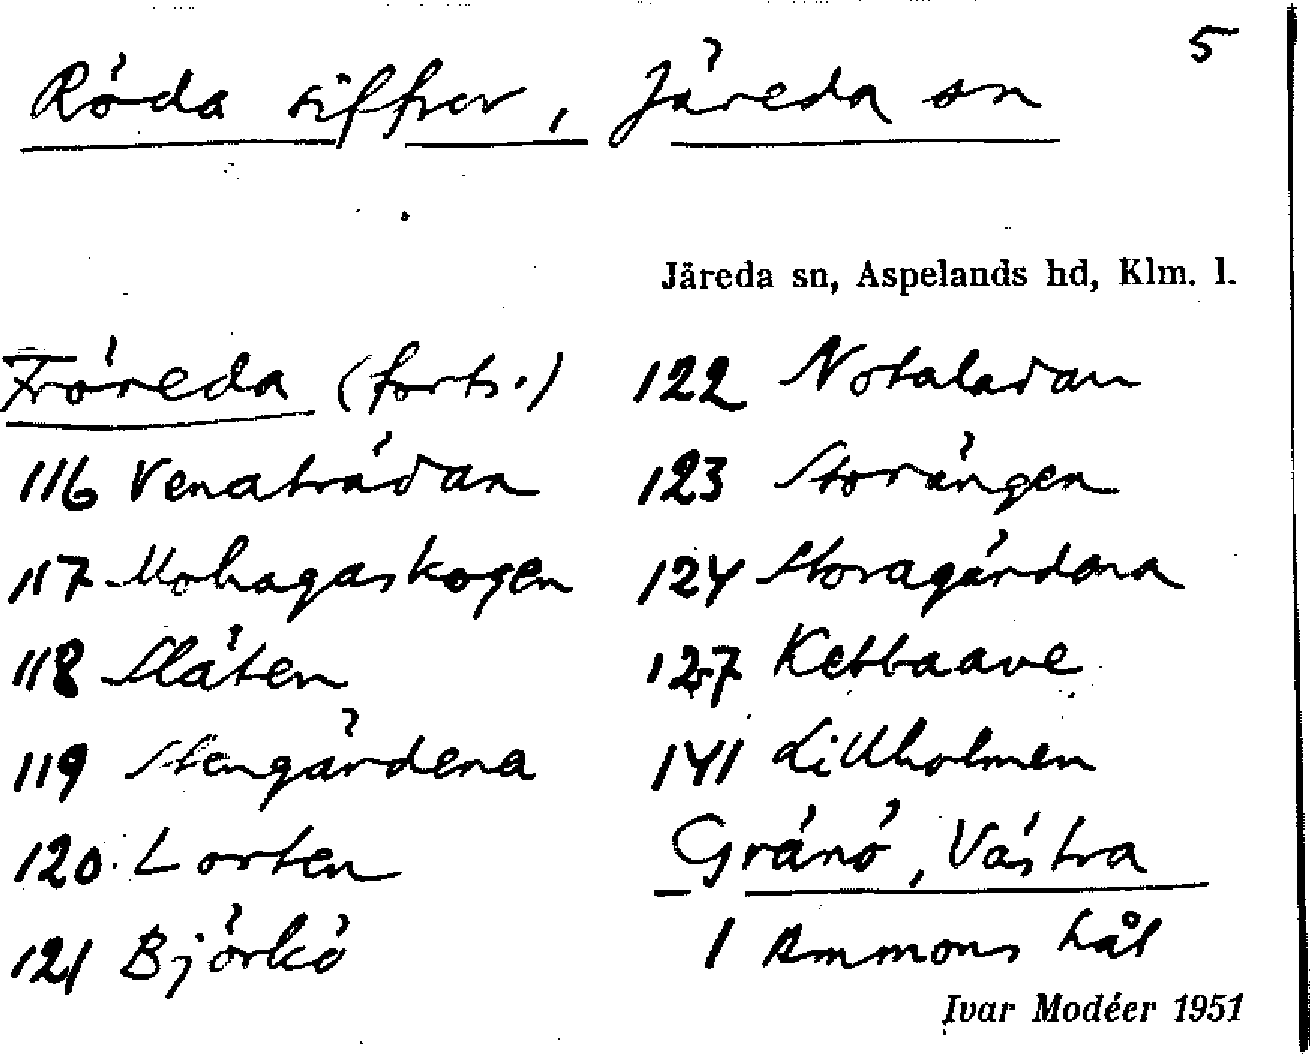 5
Röda siffror, Järeda sn
Järeda sn, Aspelands hd, Klm. l.
Fröreda (forts.)
116 Venaträdan
117 Mohagaskogen
118 Slåten
119 Stengärdena
120 Lorten
121 Björkö
122 Notaladan
123 Storängen
124 Storagärdena
127 Kettaave
141 Lillholmen
Gränö, Västra
1 Ammons hål
Ivar Modéer 1951